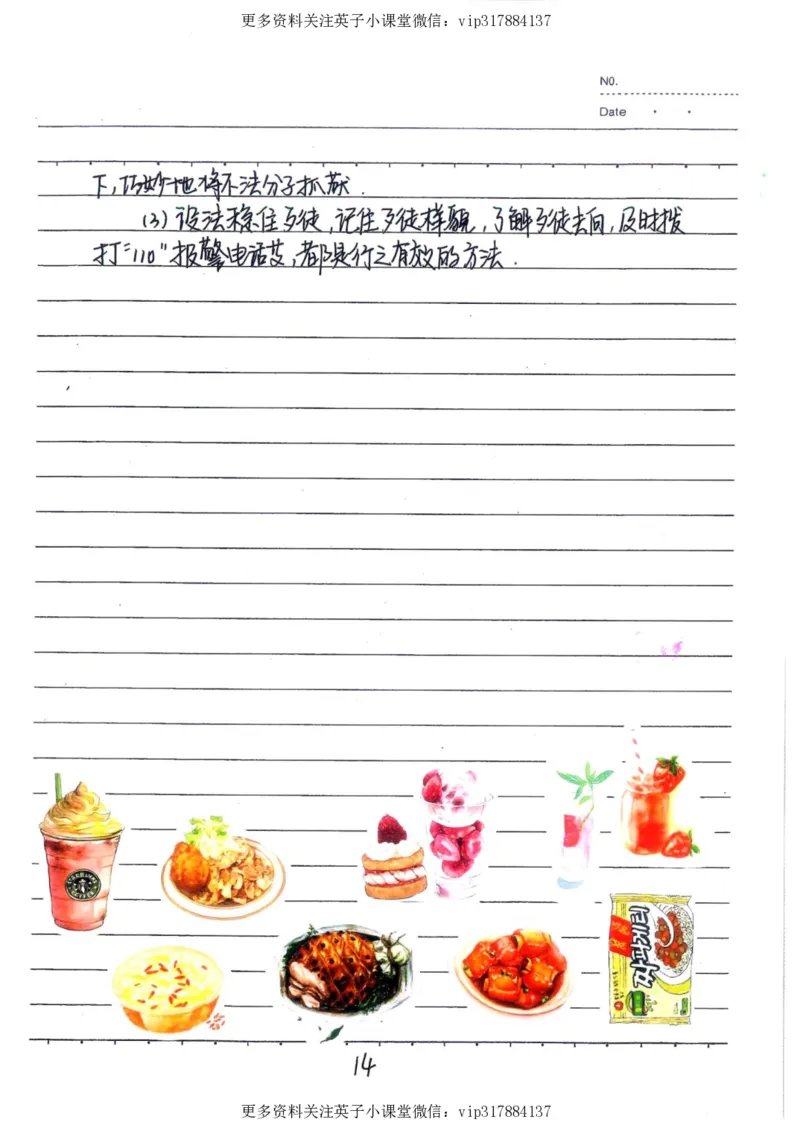 更多资料关注英子小课堂微信：vip317884137
NO.
Date
下,巧妙地将不法分子抓获.
(3)设法稳住歹徒,记住歹徒样貌,了解歹徒去向,及时拨
打“110”报警电话等,都是行之有效的方法.
짜파게티
14
更多资料关注英子小课堂微信：vip317884137